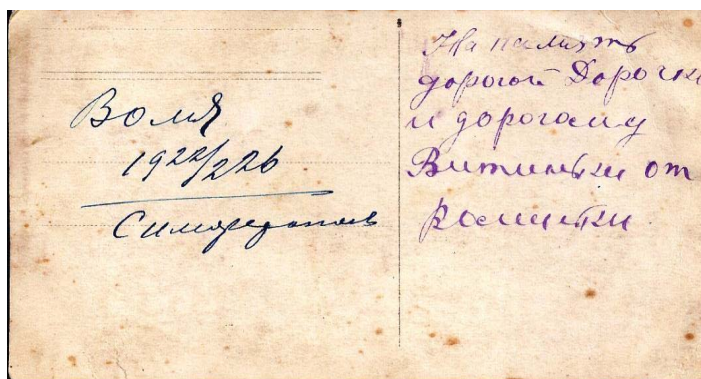 Воля
1922/22б
Симферополь
На память
дорогой Дорочки
и дорогому
Витиньки от
Ромитки